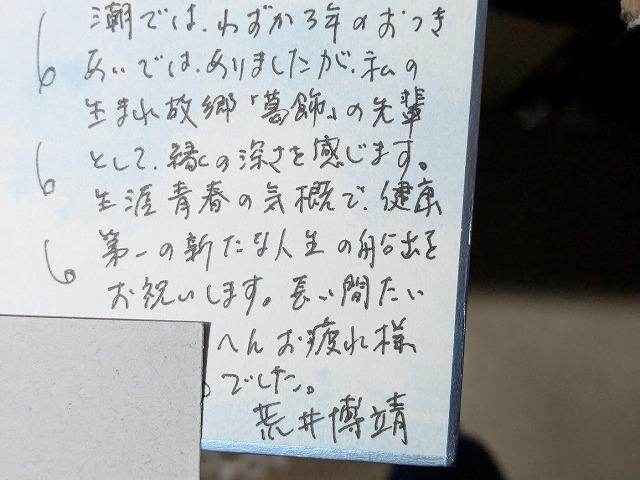 潮では、わずか3年のおつき
あいでは、ありましたが、私の
生まれ故郷「葛飾」の先輩
として、縁の深さを感じます。
生涯青春の気概で、健康
第一の新たな人生の船出を
お祝いします。長い間たい
へんお疲れ様
でした。
荒井博靖